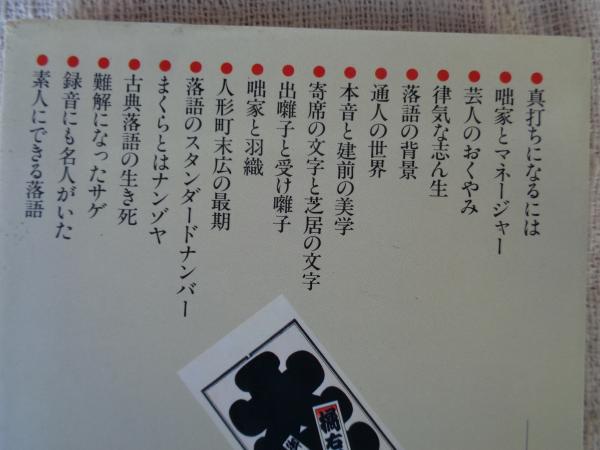 ● 真打ちになるには
● 咄家とマネージャー
● 芸人のおくやみ
● 律気な志ん生
● 落語の背景
● 通人の世界
● 本音と建前の美学
● 寄席の文字と芝居の文字
● 出囃子と受け囃子
● 咄家と羽織
● 人形町末広の最期
● 落語のスタンダードナンバー
● まくらとはナンゾヤ
● 古典落語の生き死
● 難解になったサゲ
● 録音にも名人がいた
● 素人にできる落語
橘右